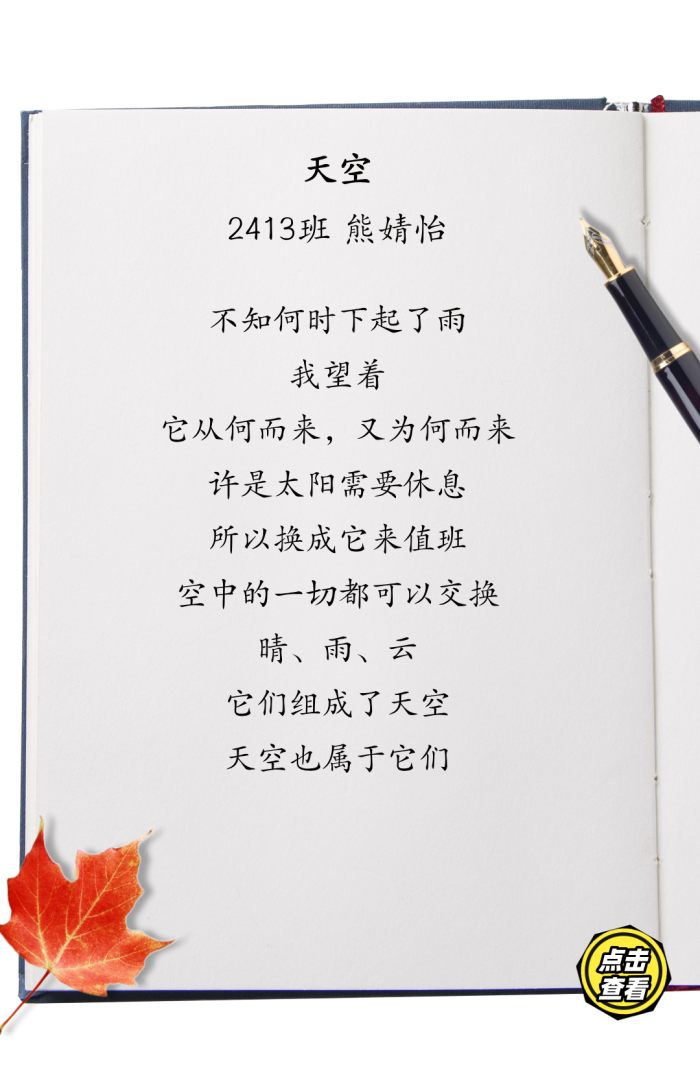 天空
2413班 熊婧怡
不知何时下起了雨
我望着
它从何而来，又为何而来
许是太阳需要休息
所以换成它来值班
空中的一切都可以交换
晴、雨、云
它们组成了天空
天空也属于它们
点击
查看